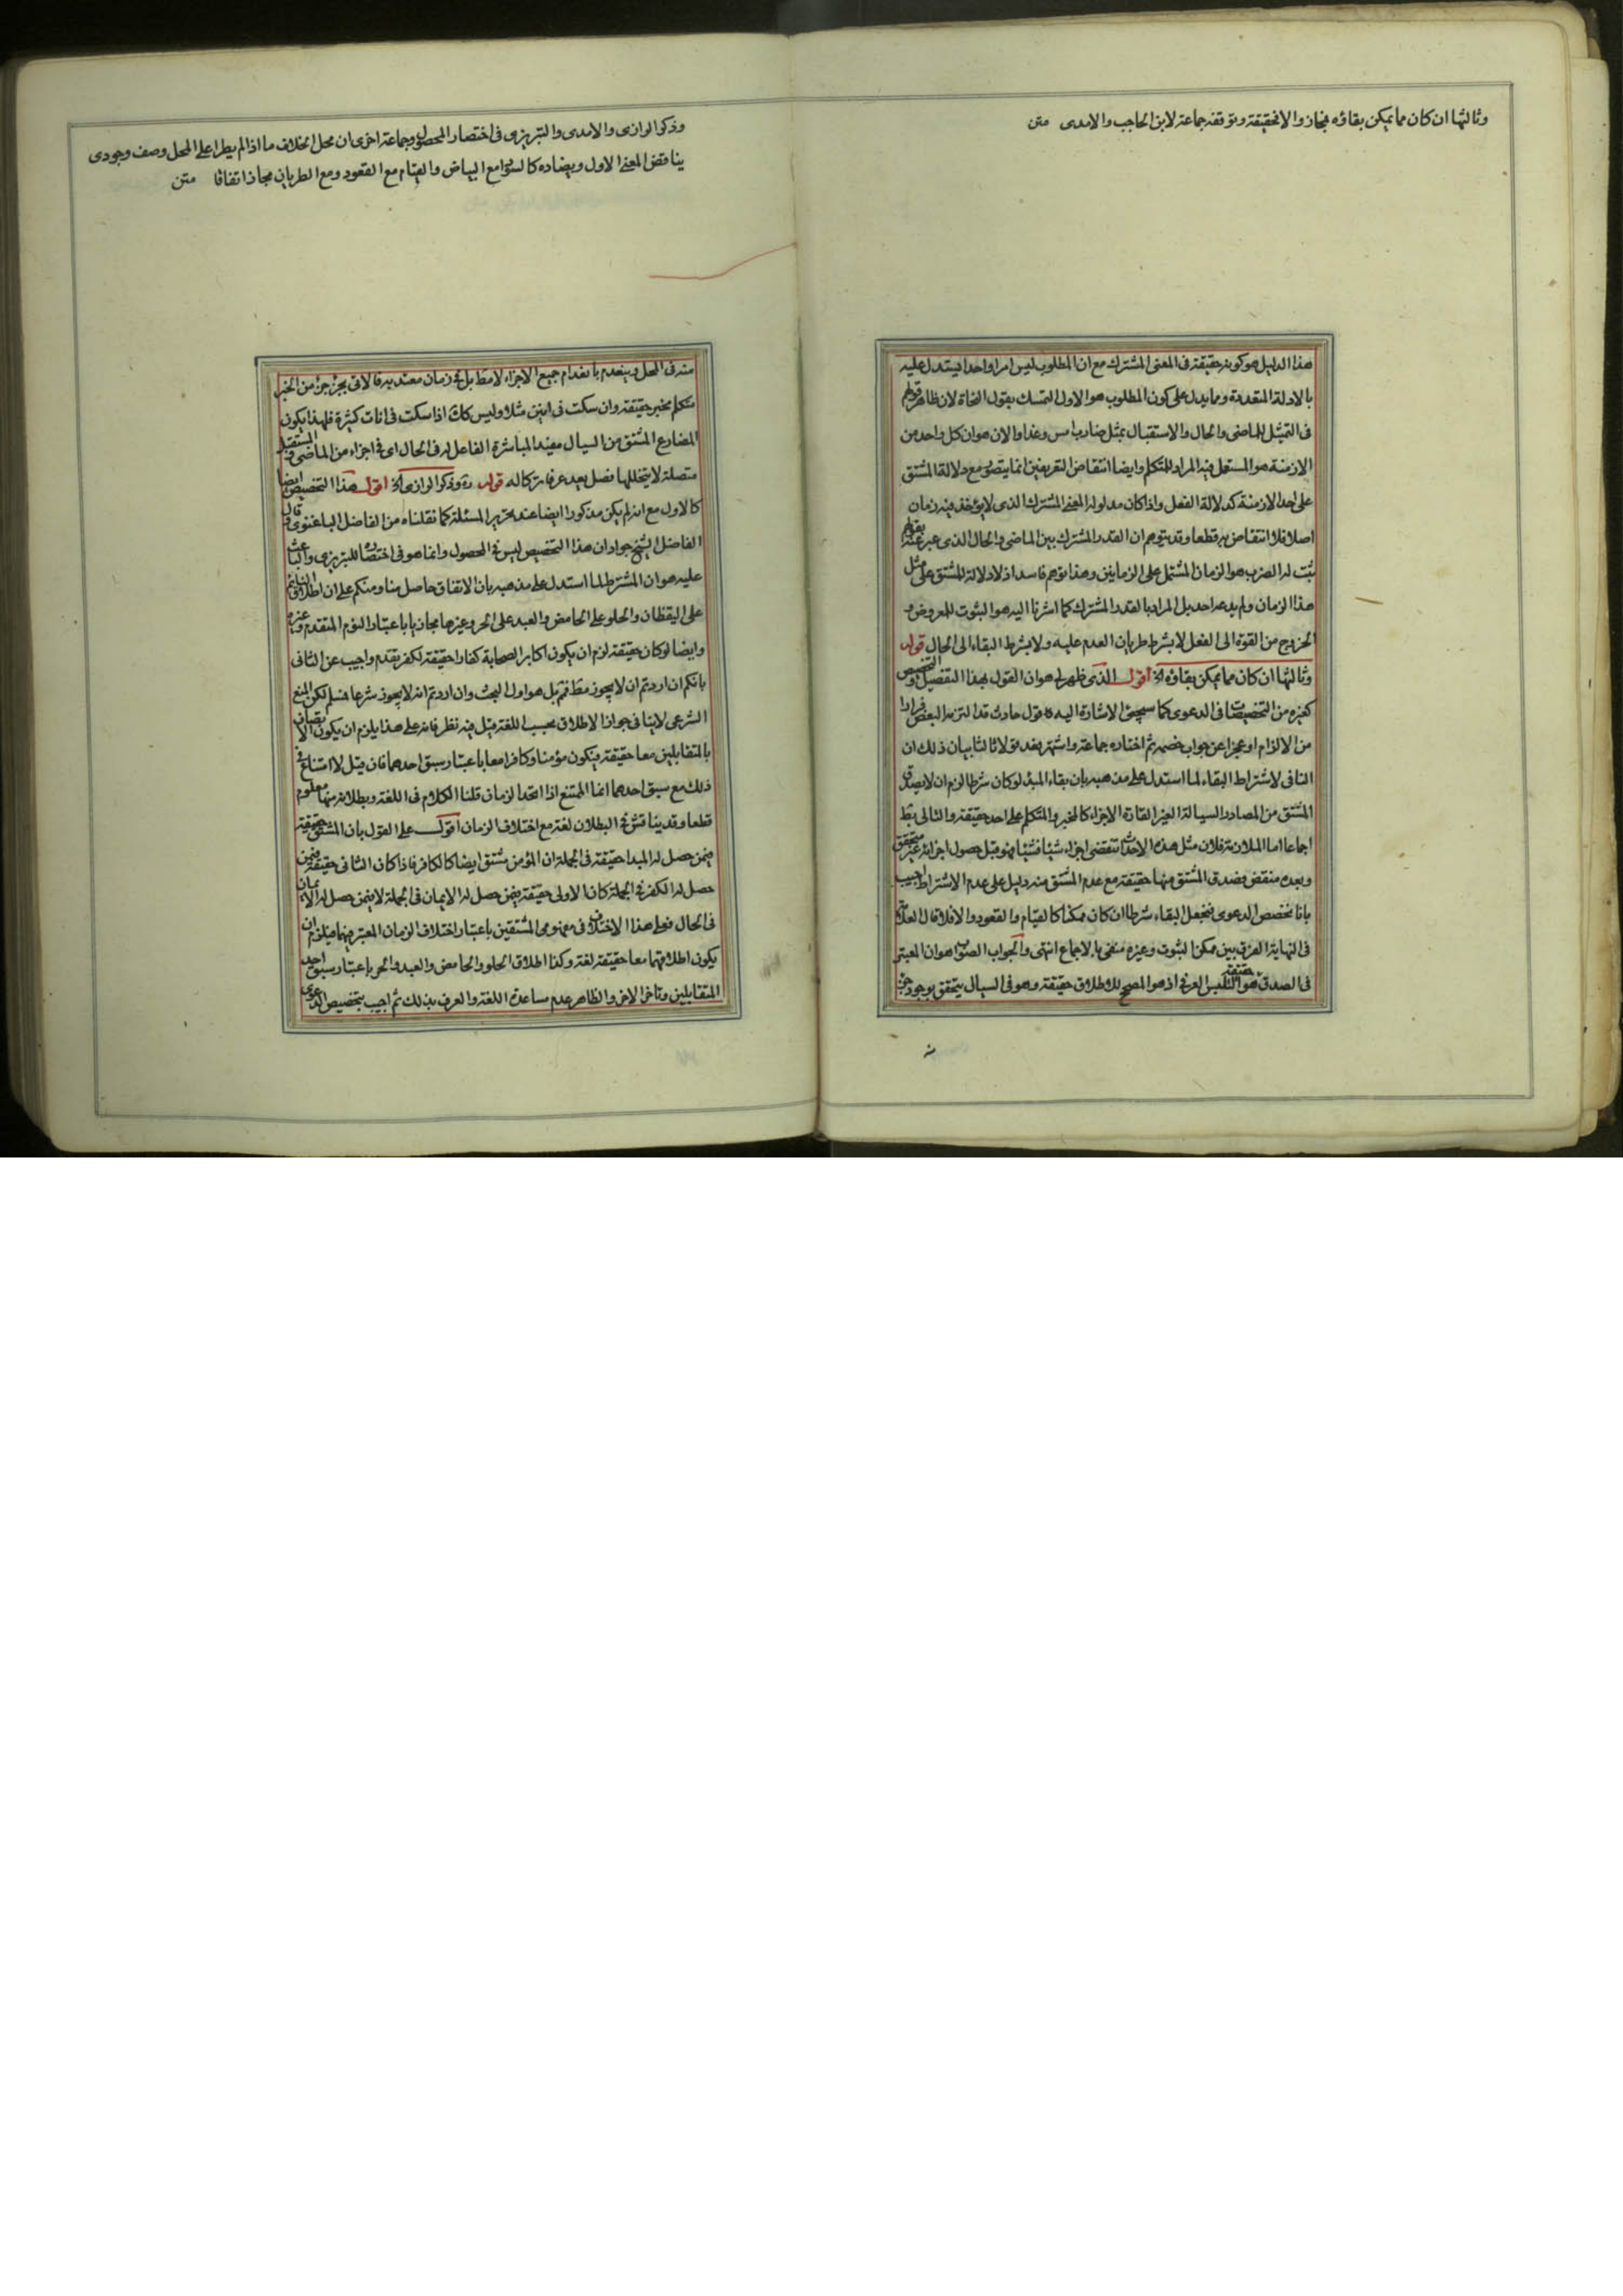 وثالثها ان كان مما يمكن بقاؤه فمجاز والا فحقيقة وتوقف جماعة لابن الحاجب والامدى متن
هذا الدليل هو كونه حقيقة فى المعنى المشترك مع ان المطلوب ليس امرا واحدا فيستدل عليه
بالادلة المتقدمة ومما يدل على كون المطلوب هو الاول التمسك بقول النحاة لان ظاهر قولهم
فى التمثل للماضى والحال والاستقبال بمثل ضارب امس وغدا والان هو ان كل واحد من
الازمنة هو المستعمل فيه المراد للمتكلم وايضا انتقاض التعريفين انما يتصور مع دلالة المشتق
على احد الازمنة كدلالة الفعل واذا كان مدلوله المعنى المشترك الذى لا يؤخذ فيه زمان
اصلا فلا انتقاض به قطعا وقد يتوهم ان القدر المشترك بين الماضى والحال الذى عبر عنه بقولهم
ثبت له الضرب هو الزمان المشتمل على الزمانين وهذا توهم فاسد اذ لا دلالة للمشتق على مثل
هذا الزمان ولم يدعه احد بل المراد بالقدر المشترك كما اشرنا اليه هو الثبوت للمعروض و
الخروج من القوة الى الفعل لا بشرط طريان العدم عليه ولا بشرط البقاء الى الحال قوله
وثالثها ان كان مما يمكن بقاؤه الخ اقول الذى ظهر لى هو ان القول بهذا التفصيل والتخصيص
كغيره من التخصيصات فى الدعوى كما سيجئ الاشارة اليه قول حادث قد التزمه البعض فرارا
من الالزام او عجزا عن جواب خصمه ثم اختاره جماعة واشتهر بعد قولا ثالثا بيان ذلك ان
النافى لاشتراط البقاء لما استدل على مذهبه بان بقاء المبدء لو كان شرطا لزم ان لا يصدق
المشتق من المصادر السيالة الغير القارة الاجزاء كالمخبر والمتكلم على احد حقيقة والتالى بط
اجماعا اما الملازمة فلان مثل هذه الاحداث تنقضى اجزاء شيئا فشيئا فهو قبل حصول اجزائه غير متحقق
وبعده منقض فصدق المشتق منها حقيقة مع عدم المشتق منه دليل على عدم الاشتراط اجيب
بانا نخصص الدعوى فنجعل البقاء شرطا ان كان ممكنا كالقيام والقعود والا فلا قال العلامة
فى النهاية الفرق بين ممكن الثبوت وغيره منفى بالاجماع انتهى والجواب الصواب هو ان المعتبر
فى الصدق حقيقة هو التلبس العرفى اذ هو المصحح للاطلاق حقيقة وهو فى السيال يتحقق بوجود جزء
وذكر الرازى والامدى والتبريزى فى اختصار المحصول وجماعة اخرى ان محل الخلاف ما اذا لم يطرا على المحل وصف وجودى
يناقض المعنى الاول ويضاده كالسواد مع البياض والقيام مع القعود ومع الطريان مجاز اتفاقا متن
منه فى المحل وينعدم بانعدام جميع الاجزاء لا مطلقا بل فى زمان معتد به فالاتى بجزء جزء من الخبر
متكلم مخبر حقيقة وان سكت فى انين مثلا وليس كك اذا سكت فى انات كثيرة فلهذا يكون
المضارع المشتق من السيال مفيد المباشرة الفاعل له فى الحال اى فى اجزاء من الماضى والمستقبل
متصلة لا يتخللها فصل يعد عرفا تركا له قوله وذكر الرازى الخ اقول هذا التخصيص ايضا
كالاول مع انه لم يكن مذكورا ايضا عند تحرير المسئلة كما نقلناه من الفاضل الباغنوى وقال
الفاضل الشيخ جواد ان هذا التخصيص ليس فى المحصول وانما هو فى اختصاره للتبريزى والباعث
عليه هو ان المشترط لما استدل على مذهبه بان الاتفاق حاصل منا ومنكم على ان اطلاق النائم
على اليقظان والحلو على الحامض والعبد على الحر وغيرها مجاز باعتبار النوم المتقدم وغيره
وايضا لو كان حقيقة لزم ان يكون اكابر الصحابة كفارا حقيقة لكفر تقدم واجيب عن الثانى
بانكم ان اردتم ان لا يجوز مطلقا فثم بل هو اول البحث وان اردتم انه لا يجوز شرعا فسلم لكن المنع
الشرعى لا ينافى جواز الاطلاق بحسب اللغة قيل فيه نظر فانه على هذا يلزم ان يكون الاتصاف
بالمتقابلين معا حقيقة فيكون مؤمنا وكافرا معا باعتبار سبق احدهما فان قيل لا امتناع فى
ذلك مع سبق احدهما انما الممتنع اذا اتحد الزمان قلنا الكلام فى اللغة وبطلانه منها معلوم
قطعا وقد يناقش فى البطلان لغة مع اختلاف الزمان اقول على القول بان المشتق حقيقة
فيمن حصل له المبدا حقيقة فى الجملة ان المؤمن مشتق ايضا كالكافر فاذا كان الثانى حقيقة فيمن
حصل له الكفر فى الجملة كان الاولى حقيقة فيمن حصل له الايمان فى الجملة لا فيمن حصل له الايمان
فى الحال فعلى هذا الاختلاف فى مفهومى المشتقين باعتبار اختلاف الزمان المعتبر فيهما فيلزم ان
يكون اطلاقهما معا حقيقة لغة وكذا اطلاق الحلو والحامض والعبد والحر باعتبار سبق احد
المتقابلين وتاخر الاخر والظاهر عدم مساعدة اللغة والعرف بذلك ثم اجيب بتخصيص الدعوى